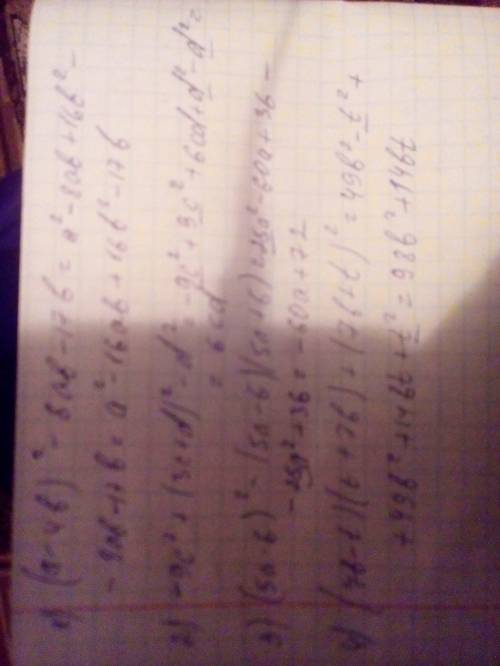 1) (a-4b)² - 8ab - 17b = a² - 8ab + 16b² -
- 8ab - 17b = a² - 16ab + 16b² - 17b
2) -9c² + (3c+d)² - d² = -9c² + 9c² + 6cd + d² - d² =
= 6cd
3) (5a-6)² - (5a-6)(5a+6) = 25a² - 60a + 36 -
- 25a² + 36 = -60a + 72
4) (7b-t)(t+7b) + (7b+t)² = 49b² - t² +
+ 49b² + 14bt + t² = 98b² + 14bt